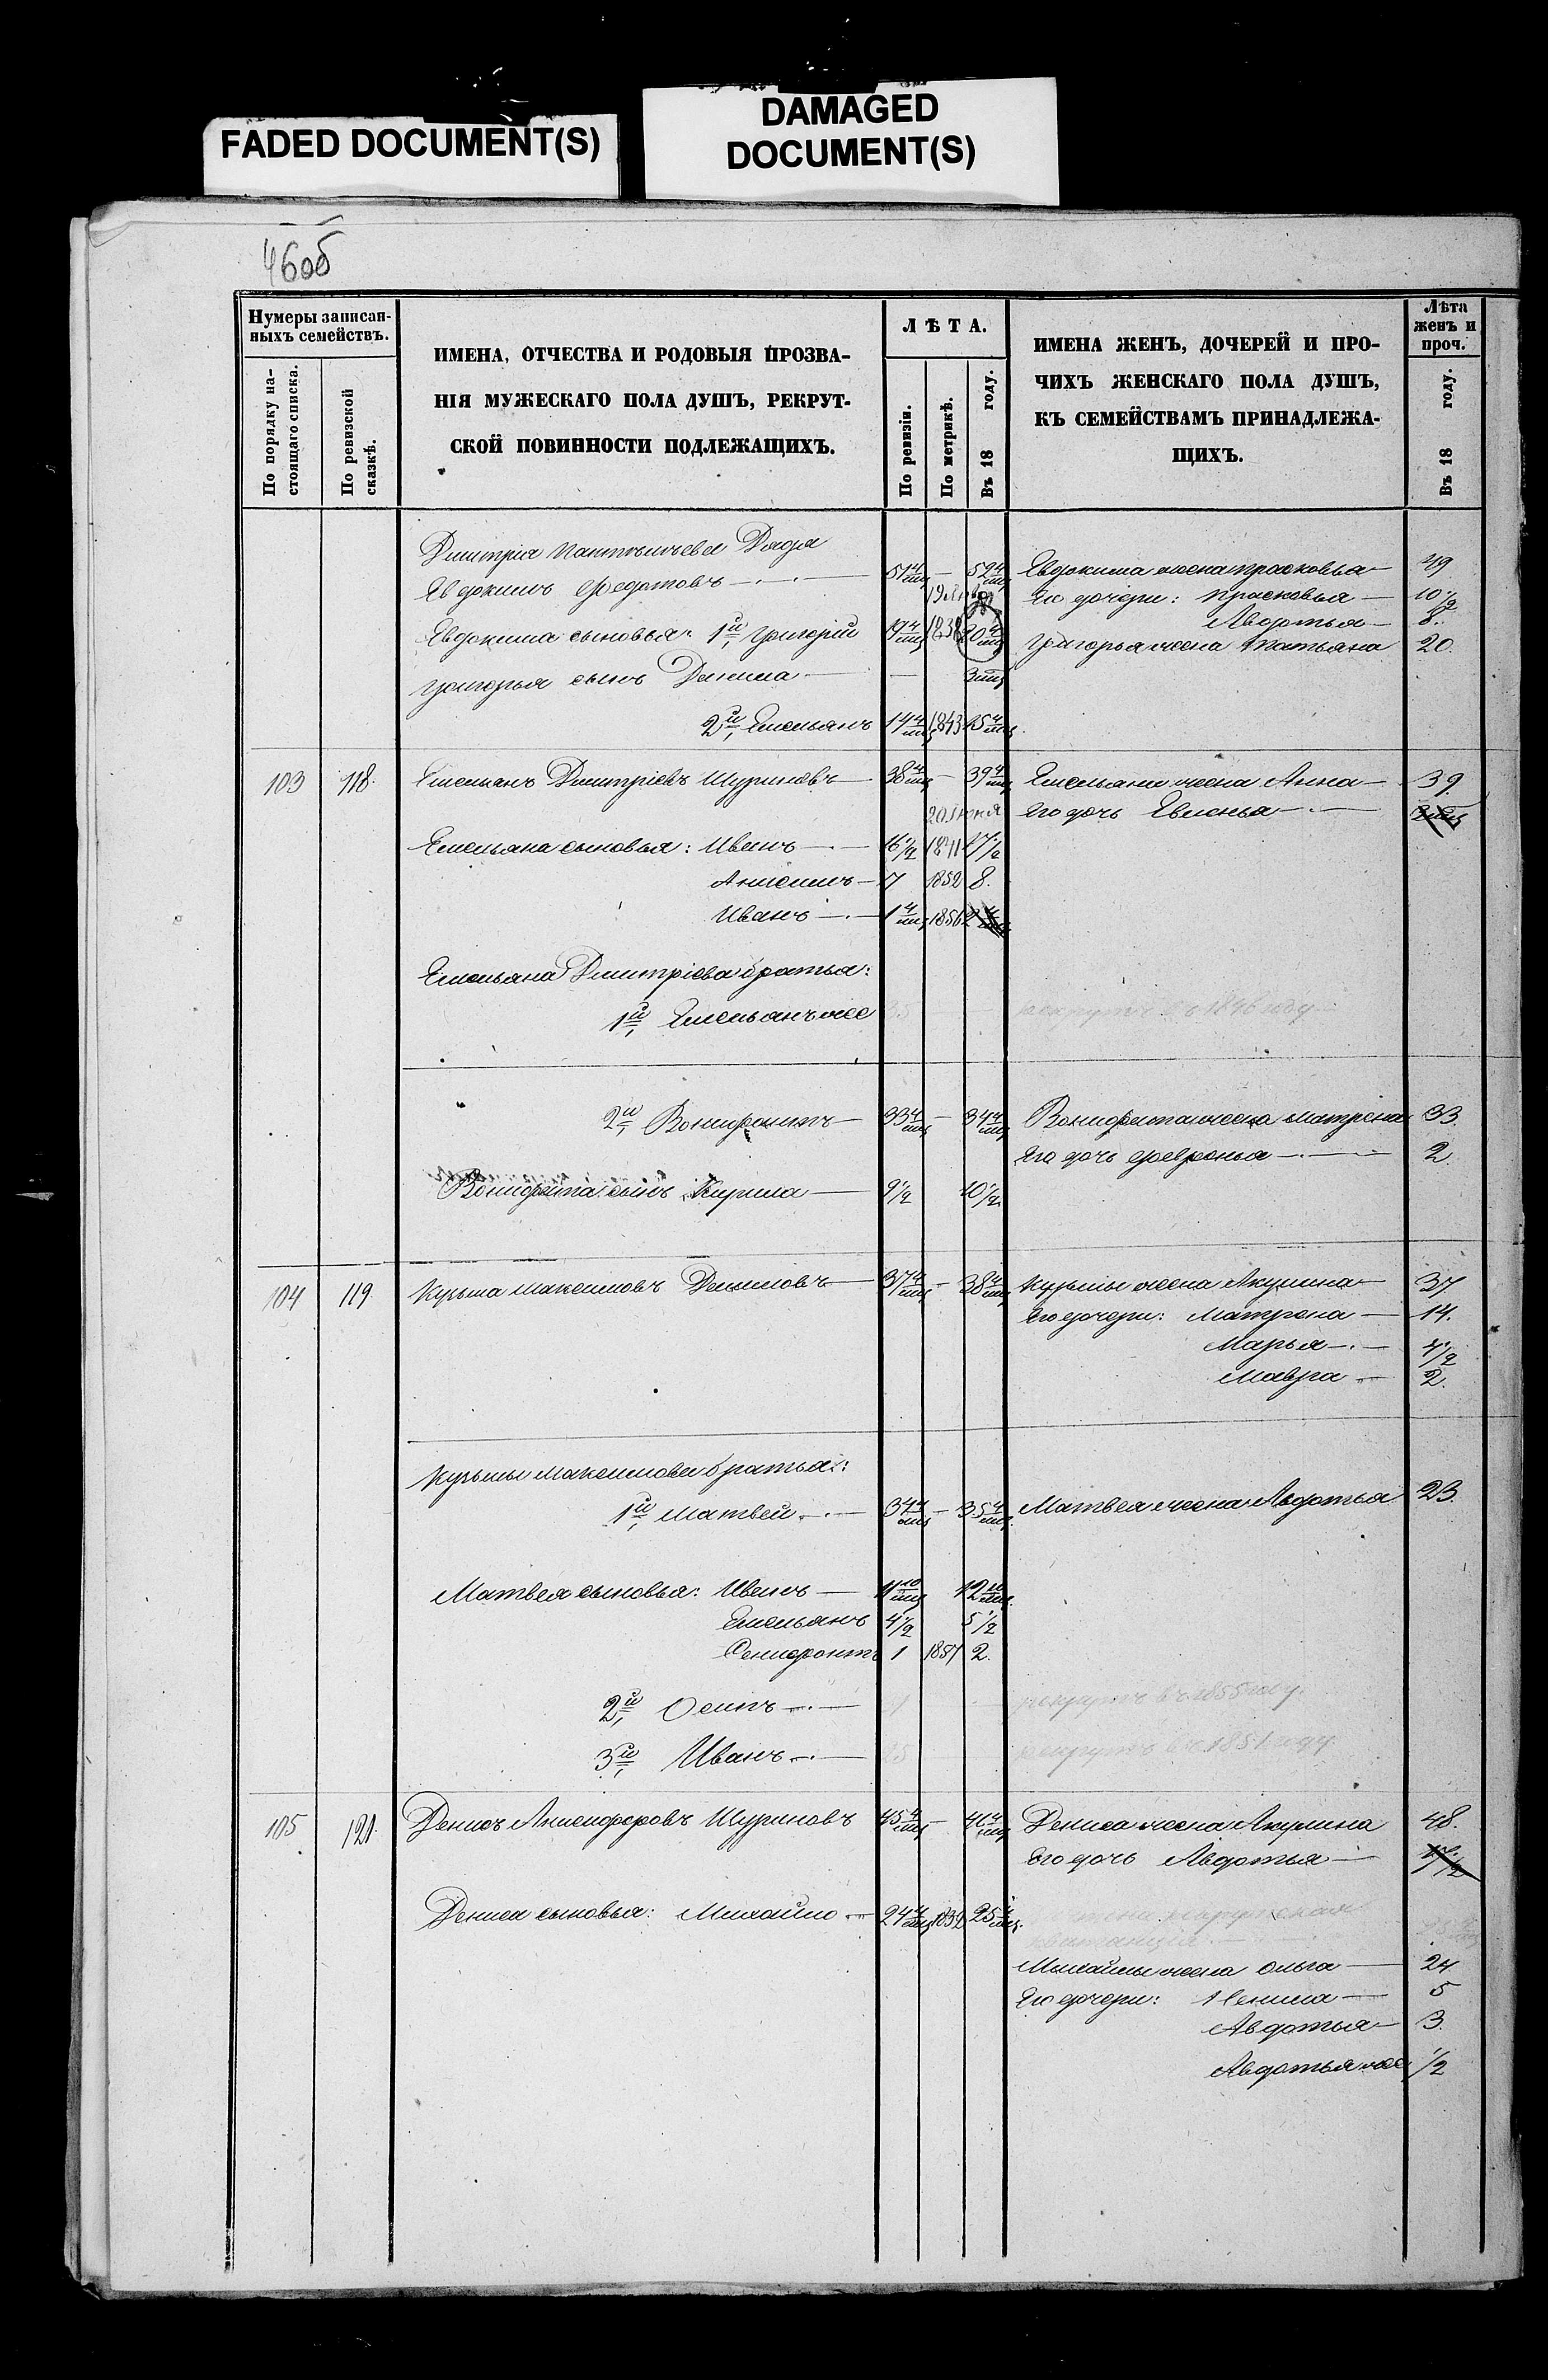 FADED DOCUMENT(S)
DAMAGED
DOCUMENT(S)
46об
Нумеры записан-
ныхъ семействъ.
По порядку на-
стоящаго списка.
По ревизской
сказкѣ.
ИМЕНА, ОТЧЕСТВА И РОДОВЫЯ ПРОЗВА-
НІЯ МУЖЕСКАГО ПОЛА ДУШЪ, РЕКРУТ-
СКОЙ ПОВИННОСТИ ПОДЛЕЖАЩИХЪ.
ЛѢТА.
По ревизіи.
По метрикѣ.
Въ 18 году.
ИМЕНА ЖЕНЪ, ДОЧЕРЕЙ И ПРО-
ЧИХЪ ЖЕНСКАГО ПОЛА ДУШЪ,
КЪ СЕМЕЙСТВАМЪ ПРИНАДЛЕЖА-
ЩИХЪ.
Лѣта
женъ и
проч.
Въ 18 году.
Дмитрія Дядя
Евдокимъ Федотовъ 51 4/мц — 52 4/мц Евдокима жена Прасковья 49
Его дочери: Прасковья 10 1/2
Авдотья 8.
Евдокима сыновья: 1й Григорій 19 4/мц 1838 20 4/мц Григорья жена Татьяна 20.
Григорья сынъ Данила — 3 мц
2й Емельянъ 14 4/мц 1843 15 4/мц
103 118. Емельянъ Дмитріевъ Шуриновъ 38 4/мц — 39 4/мц Емельяна жена Анна 39.
20 Іюня Его дочь
Емельяна сыновья: Иванъ 16 1/2 1841 17 1/2
Анисимъ 7 1852 8.
Иванъ 1 4/мц 1856 2 4/мц
Емельяна Дмитріева братья:
1й Емельянъ же 35 рекрутъ въ 1846 году
2й Вонифантъ 33 4/мц — 34 4/мц Вонифанта жена Матрена 33.
Его дочь Февронья 2.
Вонифанта сынъ Кирила 9 1/2 10 1/2
104 119. Кузьма Максимовъ 37 4/мц — 38 4/мц Кузьмы жена Акулина 37
Его дочери: Матрена 14.
Марья 4 1/2
Мавра 2.
Кузьмы Максимова братья:
1й Матвей 34 4/мц — 35 4/мц Матвея жена Авдотья 23.
Матвея сыновья: Иванъ 11 10/мц 12 10/мц
Емельянъ 4 1/2 5 1/2
1 1857 2.
2й Осипъ рекрутъ въ 1855 году.
3й Иванъ 25 рекрутъ въ 1851 году
105 121. Денисъ Анисифоровъ Шуриновъ 45 4/мц — 46 4/мц Дениса жена Акулина 48.
Его дочь Авдотья
Дениса сыновья: Михайло 24 4/мц 1832 25 4/мц
рекрутская
квитанція
Михайлы жена Ольга 24
Его дочери: 5
Авдотья 3.
Авдотья же 1/2